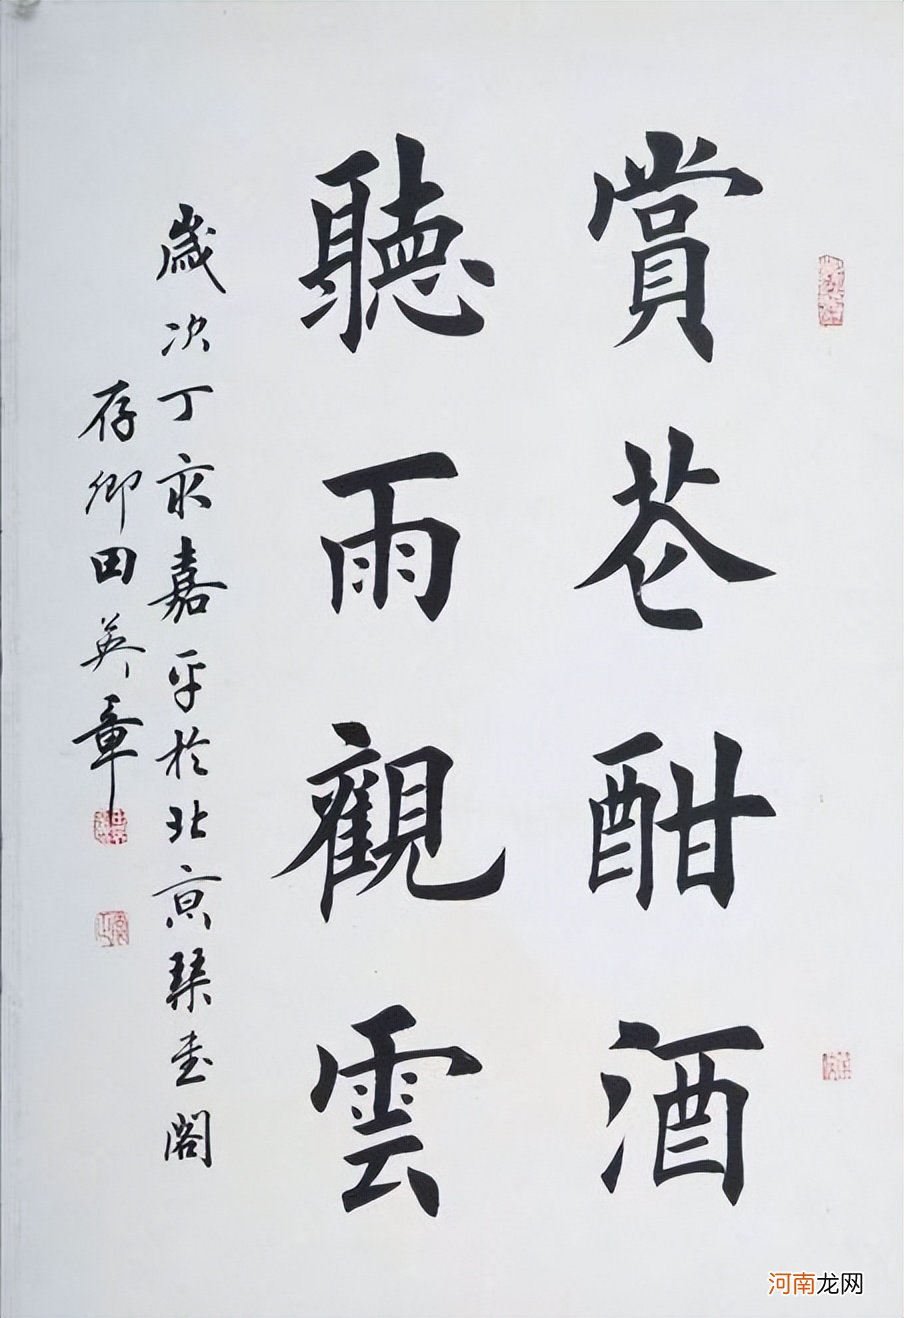 賞花酣酒
聽雨觀雲
歲次丁亥嘉平於北京琹書閣
存卿田英章
河南龙网